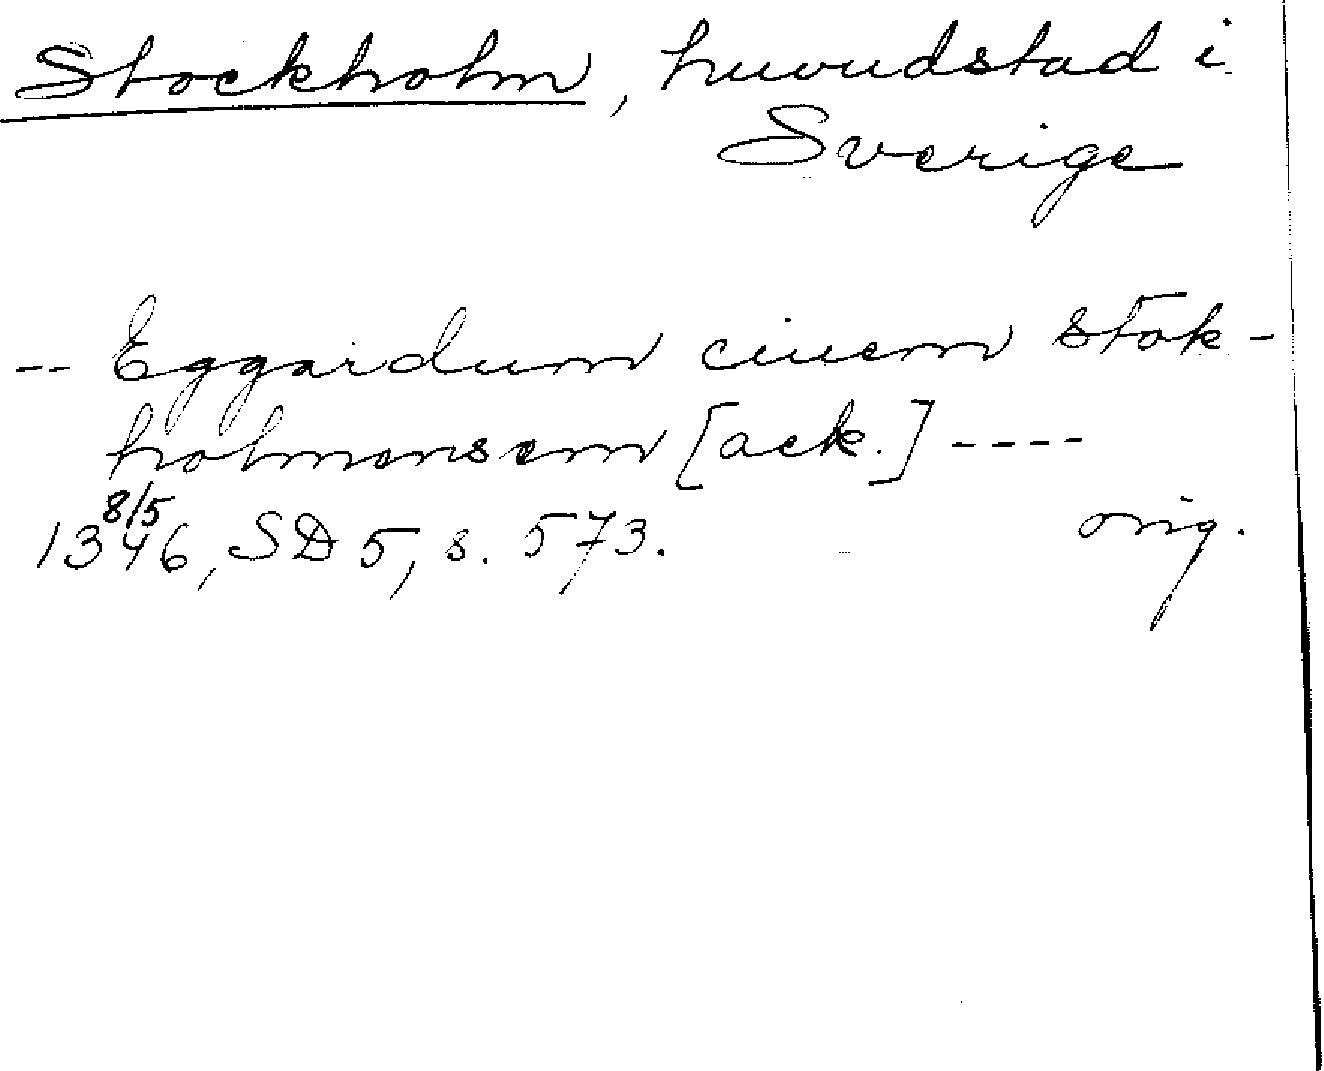 Stockholm, huvudstad i
Sverige
-- Eggardum ciuem stok-
holmensem [ack.] ----
8/5
1346, SD 5, s. 573. orig.